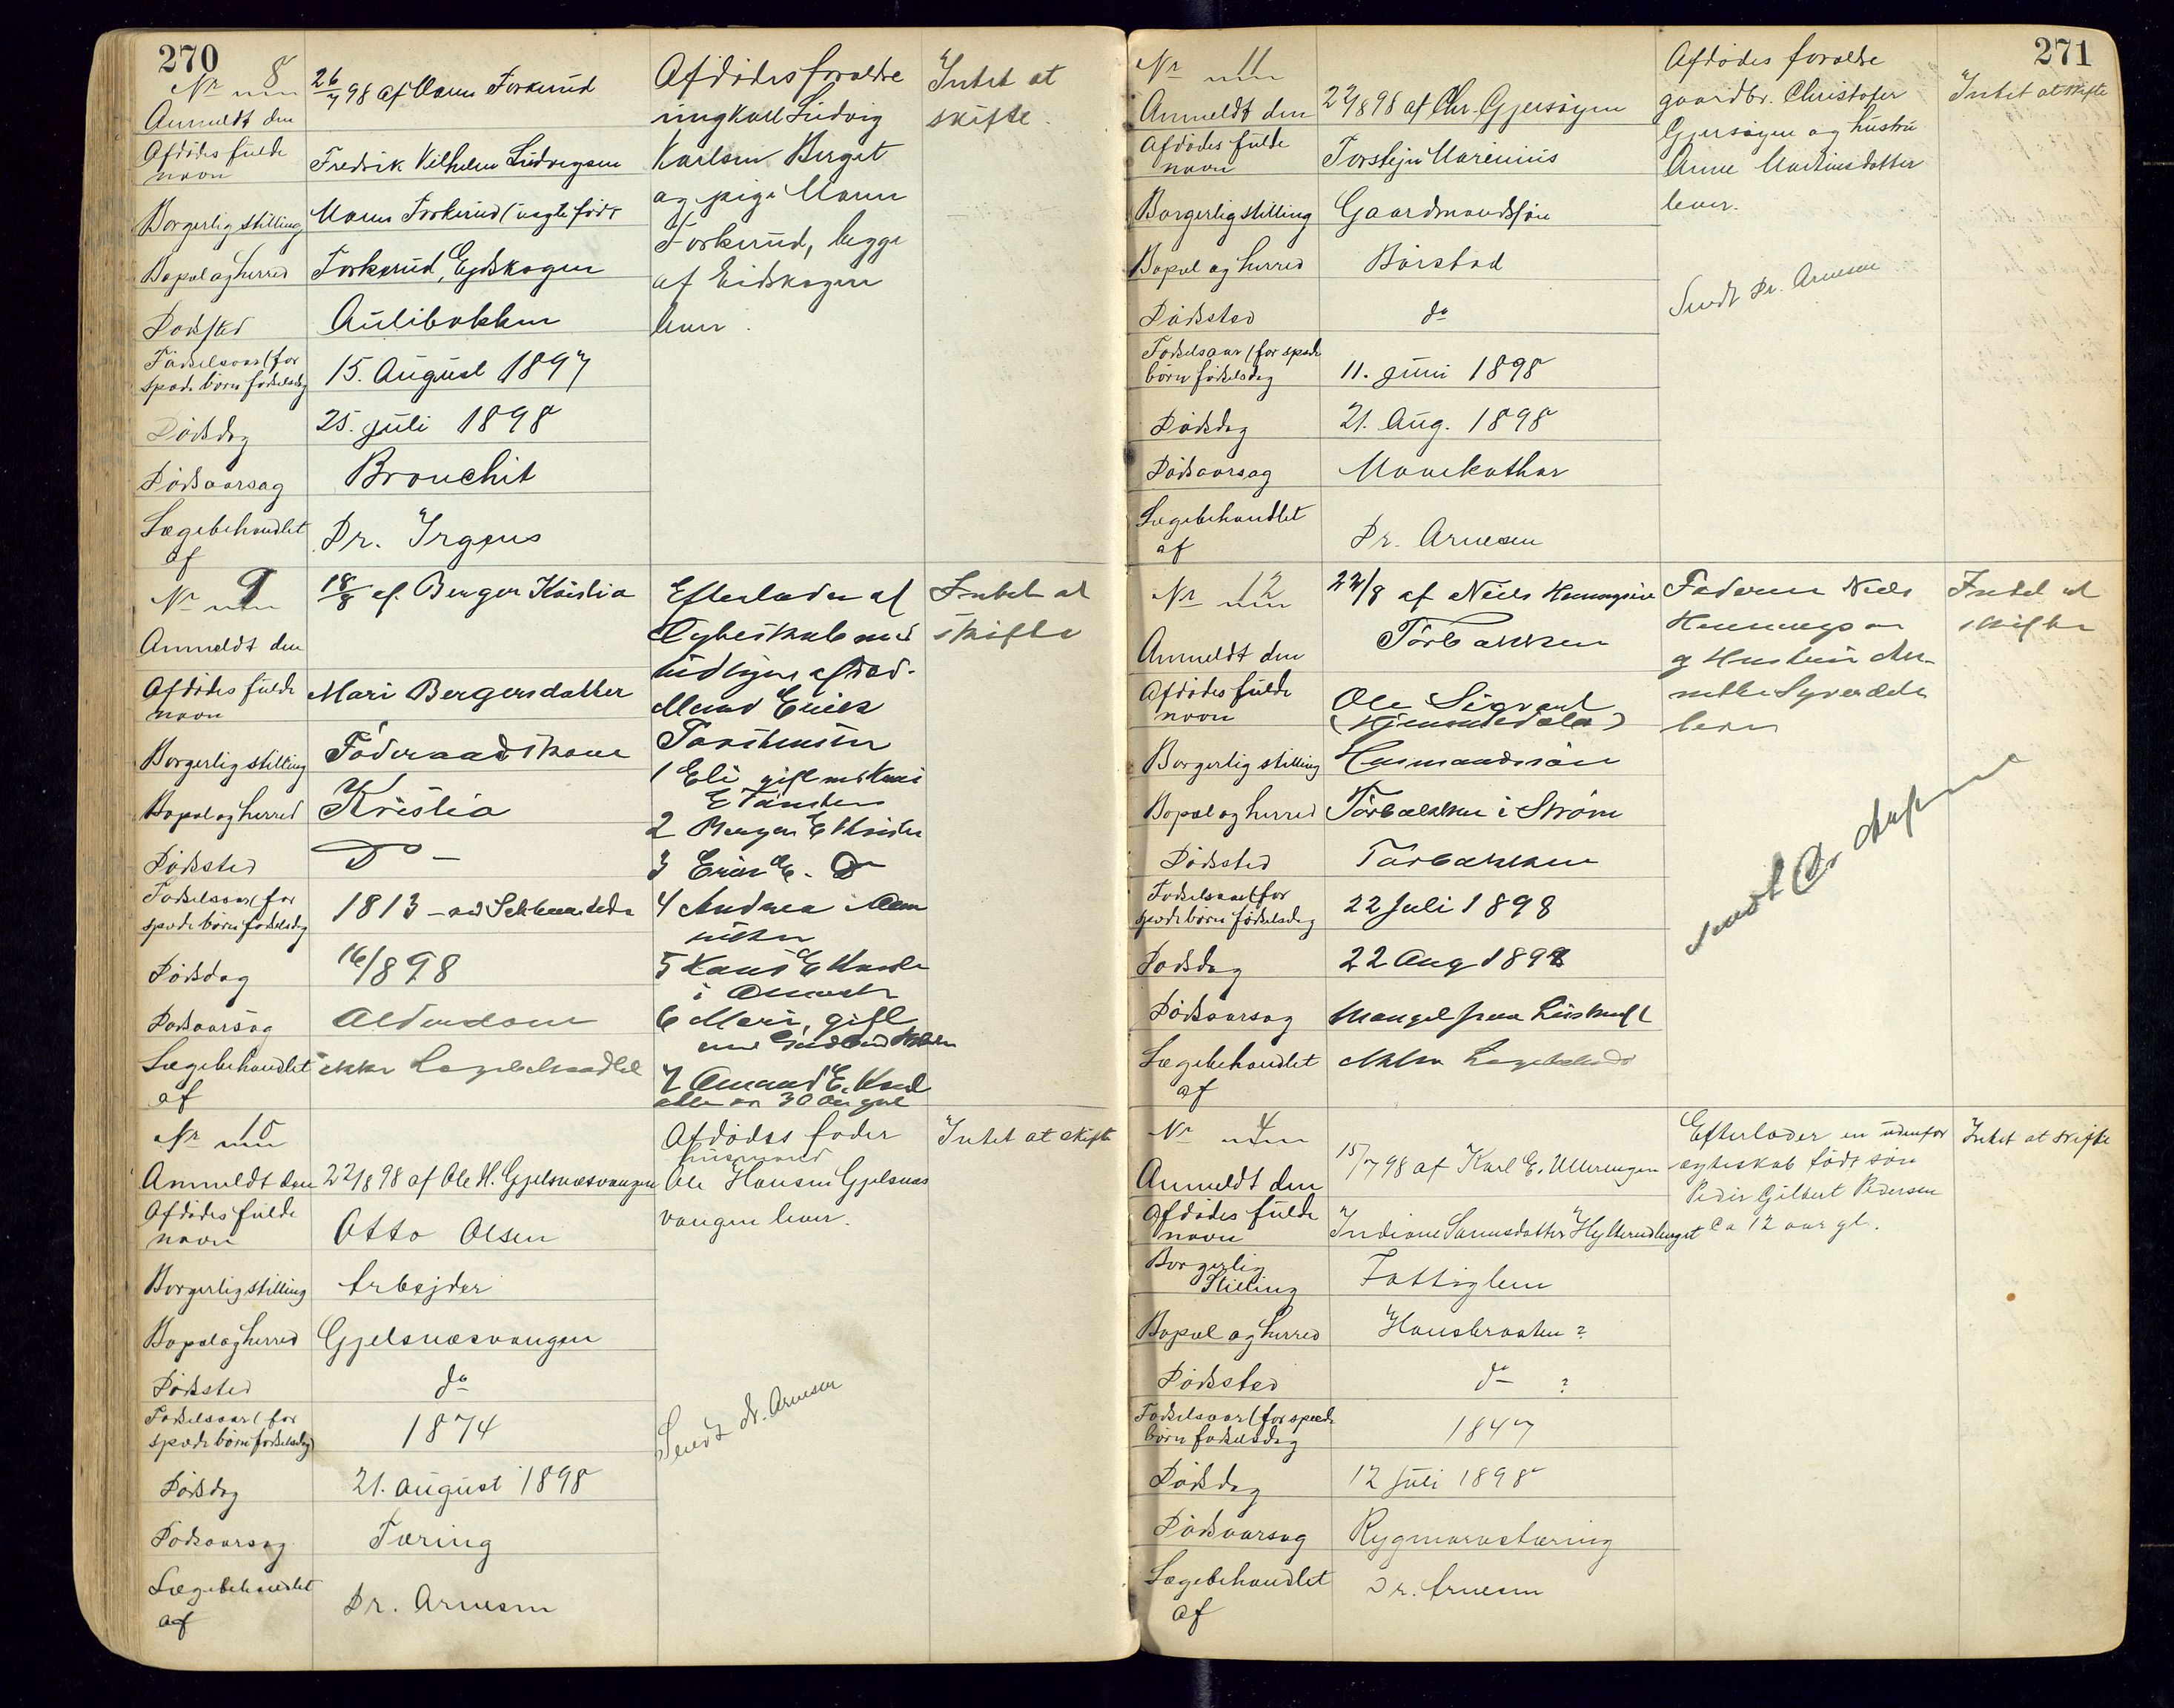 270
Nr 8
26/7 98 af Maren Forkerud
Anmeldt den
Afdødes fulde navn
Fredrik Vilhelm Ludvigsen
Borgerlig stilling
Maren Forkerud (uægte født
Bopæl og herred
Forkerud, Ejdskogen
Dødsted
Aulibakken
Fødselsaar (for spæde børn fødselsdag
15. August 1897
Dødsdag
25. juli 1898
Dødsaarsag
Bronchit
Lægebehandlet af
Dr. Irgens
Afdødes forældre
ungkarl Ludvig
Karlsen Berget
og pige Maren
Forkerud, begge
af Eidskogen
lever.
Intet at
skifte.
Nr 9
18/8 af Berger Kristia
Anmeldt den
Afdødes fulde navn
Mari Bergersdatter
Borgerlig stilling
Føderaadskone
Bopæl og herred
Kristia
Dødsted
Do -
Fødselsaar (for spæde børn fødselsdag
1813
Dødsdag
16/8 98
Dødsaarsag
Alderdom
Lægebehandlet af
ikke Lægebehandlet
Efterlader af
Ægteskab med
tidligere afdød.
Mand Erick
Torstensen
1 Eli gift med
2 Berger E
3 Erik E. Do
4 Andrea i
5 Hans E
i
6 Mari, gift
med
7 Amund E.
alle over 30 Aar gml
Intet at
skifte
Nr 10
Anmeldt den 22/8 98 af Ole H. Gjelsnæsvangen
Afdødes fulde navn
Otto Olsen
Borgerlig stilling
Arbejder
Bopæl og herred
Gjelsnæsvangen
Dødsted
do
Fødselsaar (for spæde børn fødselsdag)
1874
Dødsdag
21. august 1898
Dødsaarsag
Tæring
Lægebehandlet af
Dr. Arnesen
Afdødes fader
husmand
Ole Hansen Gjelsnæs
vangen lever.
Sendt dr. Arnesen
Intet at skifte
271
Nr 11
Anmeldt den
22/8 98 af Chr. Gjersøyen
Afdødes fulde navn
Torstejn Marenius
Borgerlig stilling
Gaardmandssøn
Bopæl og herred
Børstad
Dødsted
do
Fødselsaar (for spæde børn fødselsdag
11. juni 1898
Dødsdag
21. Aug. 1898
Dødsaarsag
Mavekathar
Lægebehandlet af
Dr. Arnesen
Afdødes forældre
gaardbr. Christofer
Gjersøyen og hustru
Anne Martinsdatter
lever.
Sendt Dr. Arnesen
Intet at skifte
Nr 12
22/8 af Niels Henningsen
Tørbakken
Anmeldt den
Afdødes fulde navn
Ole Sigvart
(hjemmedøbt)
Borgerlig stilling
Husmandssøn
Bopæl og herred
Tørbakken i Strøm
Dødsted
Tørbakken
Fødselsaar (for spæde børn fødselsdag
22 Juli 1898
Dødsdag
22 Aug 1898
Dødsaarsag
Mangel paa Livskraft
Lægebehandlet af
ikke Lægebehandlet
Faderen Niels
Henningsen
og Hustru
lever
sendt Dr
Intet at
skifte
Nr 4
15/7 98 af Karl E. Ullerengen
Anmeldt den
Afdødes fulde navn
Indiane Larsdatter Hylterudhuget
Borgerlig Stilling
Fattiglem
Bopæl og herred
Hansbraaten?
Dødsted
do ?
Fødselsaar (for spæde børn fødselsdag
1847
Dødsdag
12 Juli 1898
Dødsaarsag
Rygmarvstæring
Lægebehandlet af
Dr. Arnesen
Efterlader en udenfor
ægteskab født søn
Peder Gilbert Pedersen
Ca 12 aar gl.
Intet at skifte